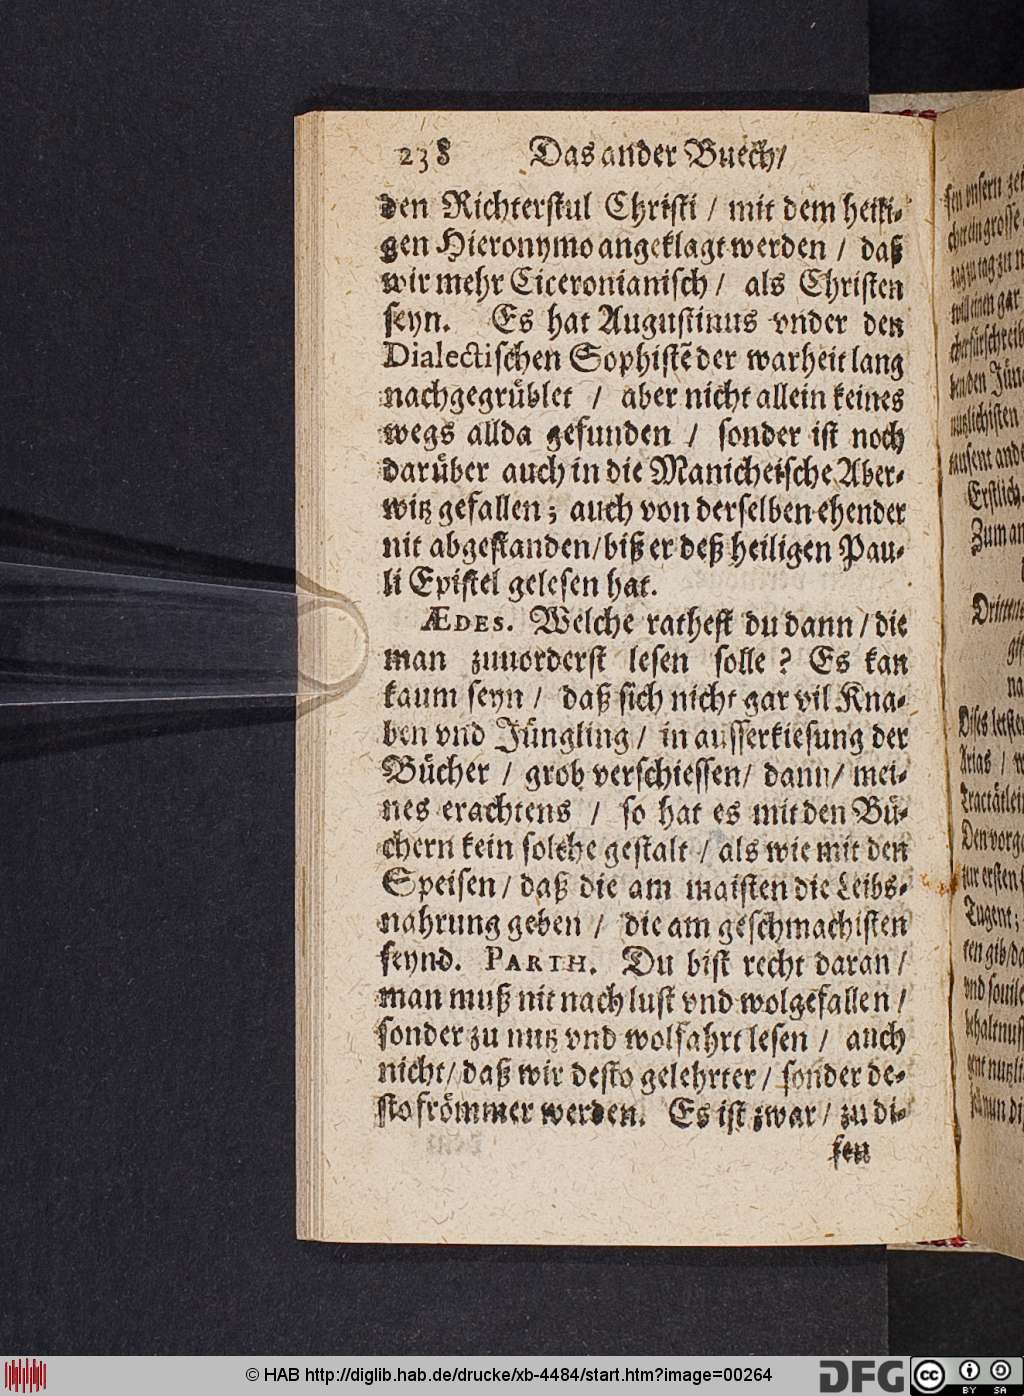 238 Das ander Buech/
den Richterstul Christi / mit dem heili-
gen Hieronymo angeklagt werden / daß
wir mehr Ciceronianisch / als Christen
seyn. Es hat Augustinus vnder den
Dialectischen Sophistẽ der warheit lang
nachgegrüblet / aber nicht allein keines
wegs allda gefunden / sonder ist noch
darüber auch in die Manicheische Aber-
witz gefallen; auch von derselben ehender
nit abgestanden/biß er deß heiligen Pau-
li Epistel gelesen hat.
ÆDES. Welche rathest du dann / die
man zuuorderst lesen solle? Es kan
kaum seyn / daß sich nicht gar vil Kna-
ben vnd Jüngling / in ausserkiesung der
Bücher / grob verschiessen/ dann/ mei-
nes erachtens / so hat es mit den Bü-
chern kein solche gestalt / als wie mit den
Speisen / daß die am maisten die Leibs-
nahrung geben / die am geschmachisten
seynd. PARTH. Du bist recht daran /
man muß nit nach lust vnd wolgefallen /
sonder zu nutz vnd wolfahrt lesen / auch
nicht/ daß wir desto gelehrter / sonder de-
sto frömmer werden. Es ist zwar / zu di-
sen
sen vnsern
Erstlich
Zum an
© HAB http://diglib.hab.de/drucke/xb-4484/start.htm?image=00264
DFG
cc
BY SA